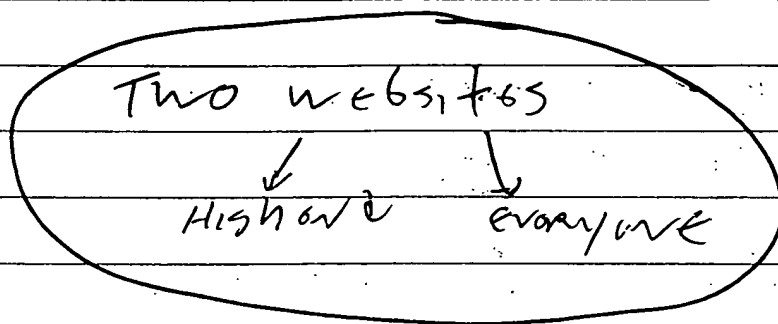 Two websites
High end everyone